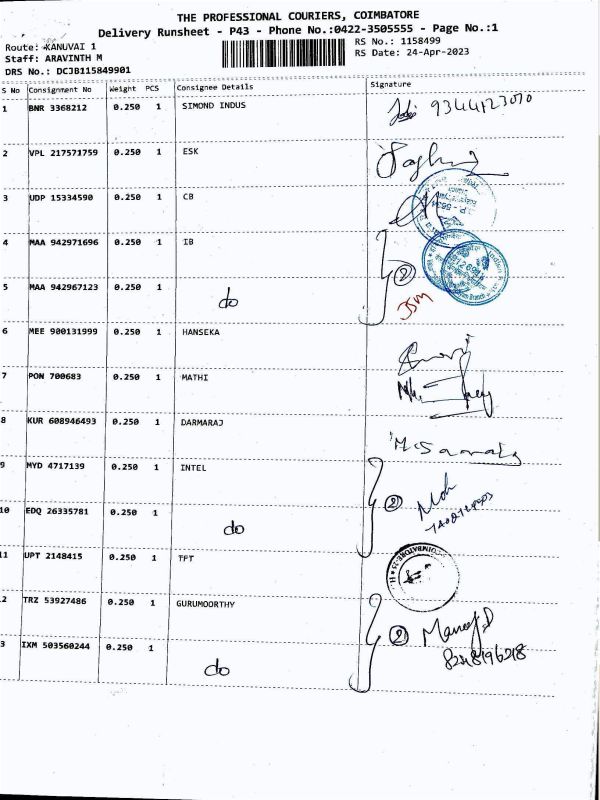 THE PROFESSIONAL COURIERS, COIMBATORE
Delivery Runsheet - P43 - Phone No.:0422-3505555 - Page No.:1
Route: KANUVAI 1
RS No.: 1158499
Staff: ARAVINTH M
RS Date: 24-Apr-2023
DRS No.: DCJB115849901
S No Consignment No Weight PCS Consignee Details Signature
1 BNR 3368212 0.250 1 SIMOND INDUS
2 VPL 217571759 0.250 1 ESK
3 UDP 15334590 0.250 1 CB
4 MAA 942971696 0.250 1 IB
2
5 MAA 942967123 0.250 1 do
6 MEE 900131999 0.250 1 HANSEKA
7 PON 700683 0.250 1 MATHI
8 KUR 608946493 0.250 1 DARMARAJ
9 MYD 4717139 0.250 1 INTEL
2
10 EDQ 26335781 0.250 1 do
11 UPT 2148415 0.250 1 TFT
2 TRZ 53927486 0.250 1 GURUMOORTHY
2
3 IXM 503560244 0.250 1 do